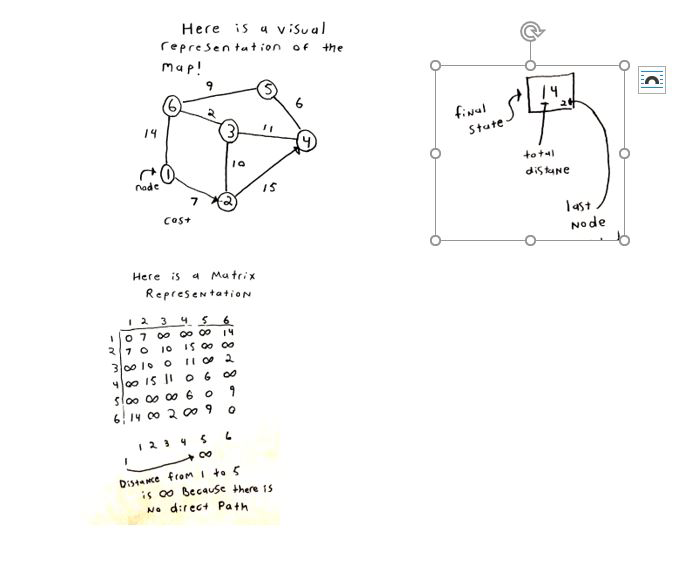 Here is a visual
representation of the
map!
9
5
6
2
6
3
11
4
14
10
1
node
7
2
15
cost
final
state
14
26
total
distane
last
Node
Here is a Matrix
Representation
1 2 3 4 5 6
1 0 7 ∞ ∞ ∞ 14
2 7 0 10 15 ∞ ∞
3 ∞ 10 0 11 ∞ 2
4 ∞ 15 11 0 6 ∞
5 ∞ ∞ ∞ 6 0 9
6 14 ∞ 2 ∞ 9 0
1 2 3 4 5 6
1 ∞
Distance from 1 to 5
is ∞ Because there is
No direct Path